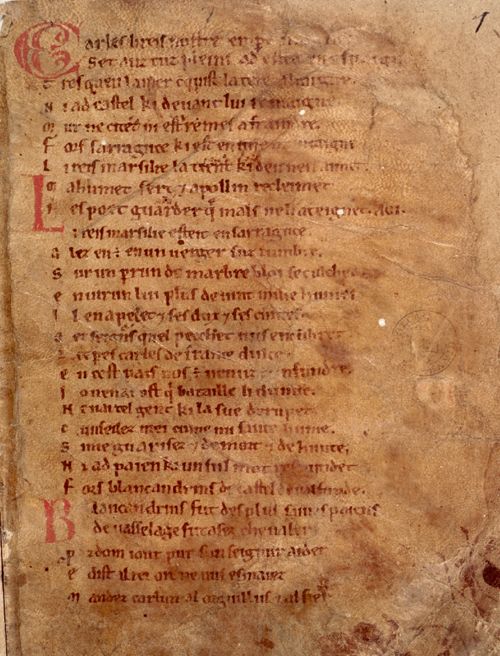 Carles li reis nostre emꝑ
Set anz tuz pleins ad estet en espaigne
Tresquen la mer cũquist la tere altaigne
N i ad castel ki deuant lui remaigne
M ur ne citet ni est remes a fraindre.
F ors sarraguce ki est en une muntaigne
L i reis marsilie la tient ki deu nen aimet
M ahumet sert ⁊ apollin recleimet
N es poet guarder q̃ mals ne li ateignet. AOI.
L i reis marsilie esteit en sarraguce.
A lez en est en un uerger suz lumbre.
S ur un perrun de marbre bloi se culched
E nuirun lui plus de uint milie humes
I l en apelet ⁊ ses dux ⁊ ses cuntes
seignurs quel pecchet nus encumbret
carles de france dulce
E n cest pais nos est uenuz cunfundre.
I o nen ai ost q̃ bataille li dunne
N en ai tel gent ki la sue derumpet
C unseilez mei cume mi saiue hume.
S i me guarisez ⁊ de mort ⁊ de hunte.
N i ad paien ki un sul mot respundet
F ors blancandrins de castel de ualfunde.
B lancandrins fut des plus saiues paiens
de uasselage fut asez cheualer
P rozdom i out pur sun seignur aider
E dist al rei ore ne uus esmaiez
M andez carlun al orguillus ⁊ al fier